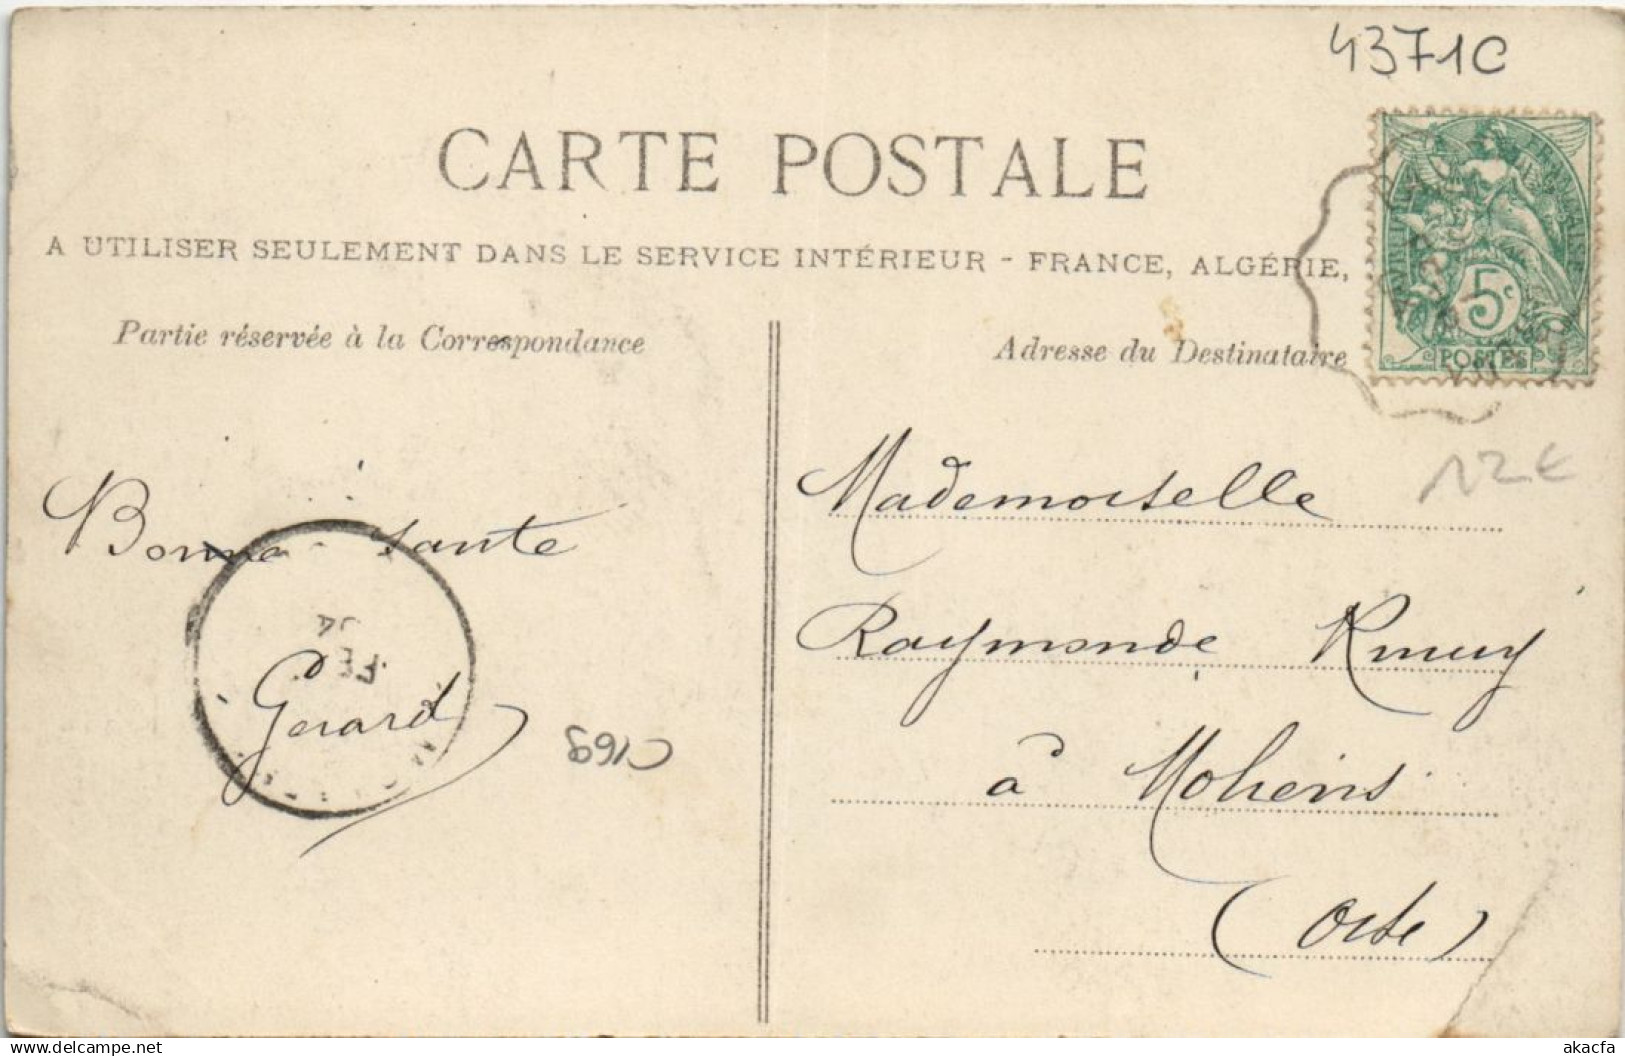 4371C
CARTE POSTALE
A UTILISER SEULEMENT DANS LE SERVICE INTÉRIEUR - FRANCE, ALGÉRIE,
Partie réservée à la Correspondance
Adresse du Destinataire
5c
POSTES
12 €
Bonne santé
Gérard
C169
Mademoiselle
Raymonde
à Moliens
(Oise)
delcampe.net
akacfa